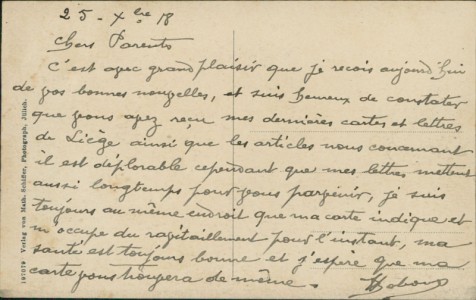 25 - Xbre 18
Chers Parents
C'est avec grand plaisir que je recois aujourd'hui
de vos bonnes nouvelles, et suis heureux de constater
que vous avez reçu mes dernières cartes et lettres
de Liège ainsi que les articles nous concernant
il est déplorable cependant que mes lettres mettent
aussi longtemps pour vous parvenir, je suis
toujours au même endroit que ma carte indique et
m'occupe du ravitaillement pour l'instant, ma
santé est toujours bonne et j'espère que ma
carte vous trouvera de même.
Verlag von Math. Schiffer, Photograph, Jülich.